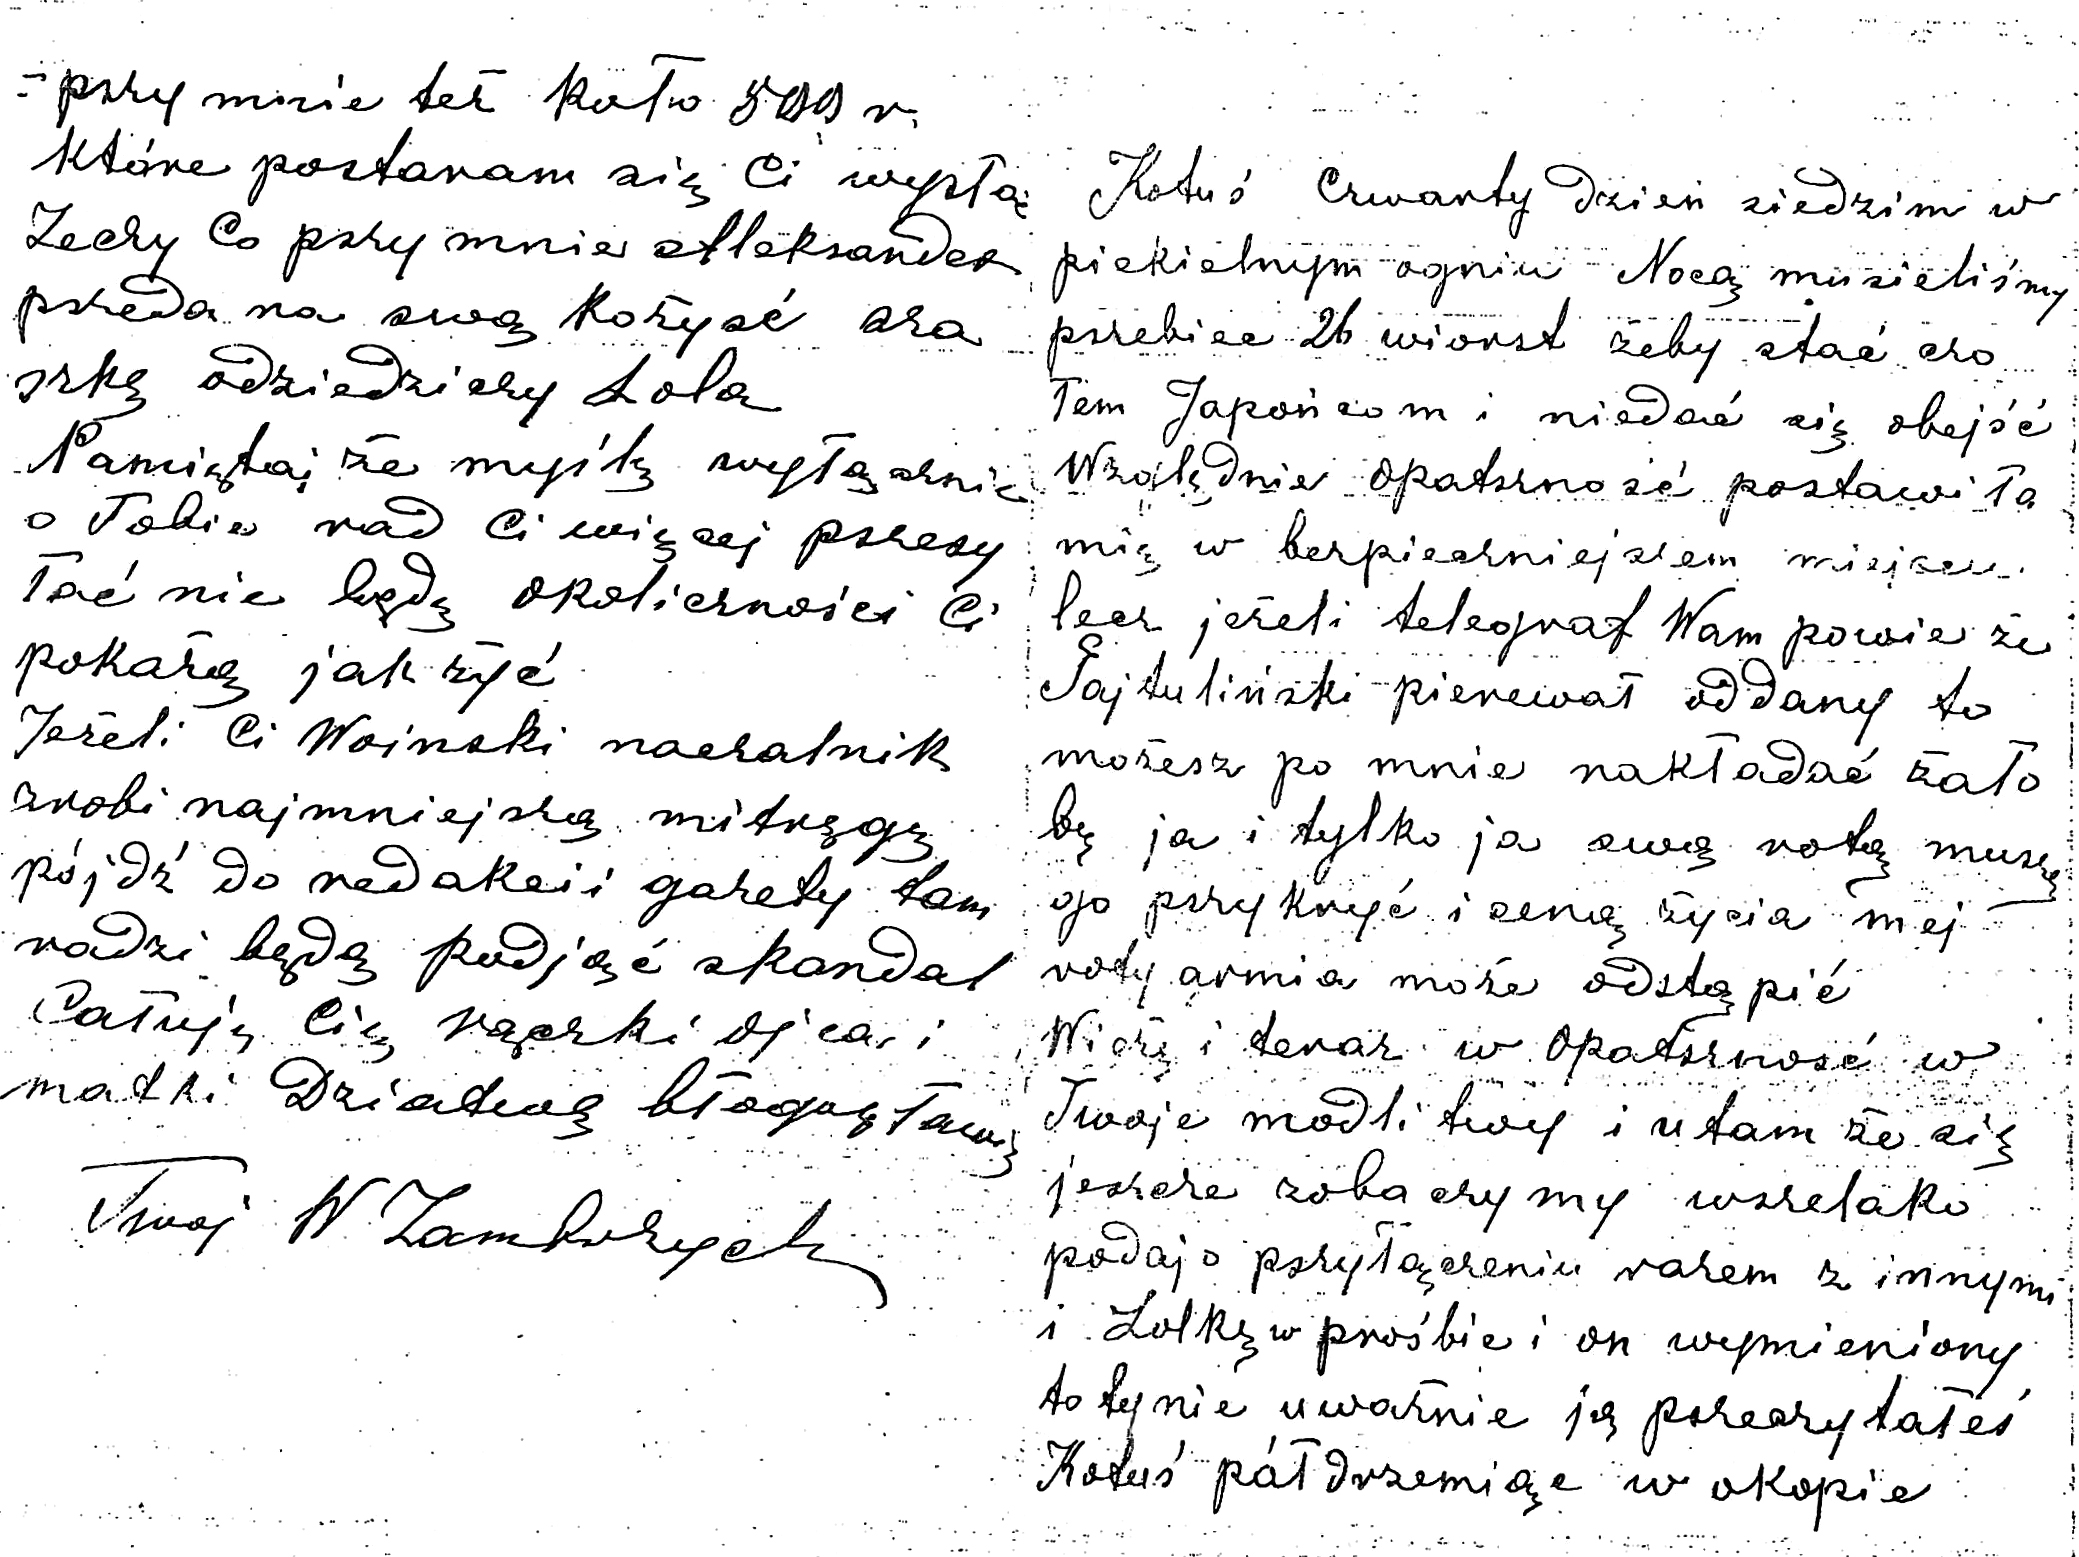 przy mnie też koło 500 r.
które postaram się Ci wysłać
Zechy Co przy mnie Aleksander
przeda na swą kożyść sza
szkę odziedziczy Lola
Pamiętaj że myślę wyłącznie
o Tobie rad Ci więcej przesy
łać nie będę okoliczności Ci
pokażą jak żyć
Jeżeli Ci Woinski naczalnik
zrobi najmniejszą mitręgę
pójdź do redakcii gazety tam
radzi będą podjąć skandal
Całuję Cię rączki ojca i
matki Dziatwę błogosławię
Twoj W Zamborzycki
Kotuś Czwarty dzień siedzim w
piekielnym ogniu Nocą musieliśmy
przebiec 26 wiorst żeby stać czo
łem Japońcom i niedać się obejść
Względnie Opatrzność postawiła
mię w bezpieczniejszem miejscu
lecz jeżeli telegraf Wam powie że
Tajtuliński pierewał oddany to
możesz po mnie nakładać żało
bę ja i tylko ja swą rotą muszę
go przykryć i ceną życia mej
roty armia może odstąpić
Wierzę i teraz w Opatrzność w
Twoje modlitwy i utam że się
jeszcze zobaczymy wszelako
podaj o przyłączeniu razem z innymi
i Lolkę w prośbie i on wymieniony
to ty nie uważnie ją przeczytałeś
Kotuś pół drzemiąc w okopie